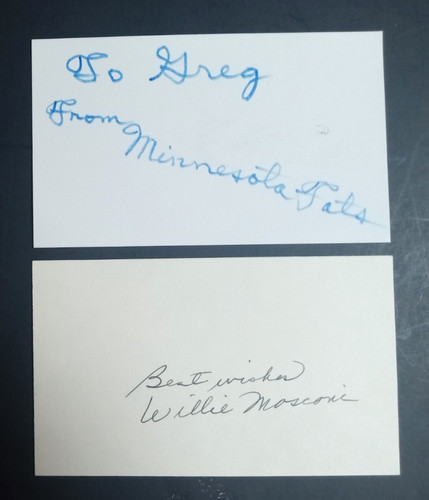 To Greg
From
Minnesota Fats
Best wishes
Willie Mosconi